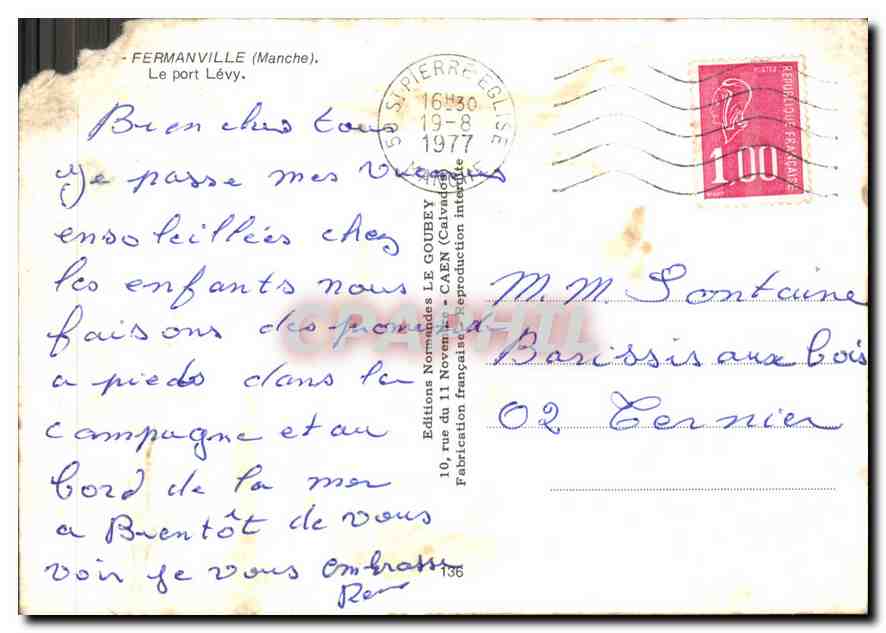 - FERMANVILLE (Manche).
Le port Lévy.
50 ST PIERRE EGLISE
16H30
19-8
1977
MANCHE
POSTES
REPUBLIQUE FRANÇAISE
1,00
Bien chers tous
Je passe mes vacances
ensoleillées chez
les enfants nous
faisons des promenades
a pieds dans la
campagne et au
bord de la mer
a Bientôt de vous
voir je vous embrasse
Editions Normandes LE GOUBEY
10, rue du 11 Novembre - CAEN (Calvados)
Fabrication française - Reproduction interdite
136
M. M. Fontaine
Barissis aux bois
02 Ternier
CPAPHIL